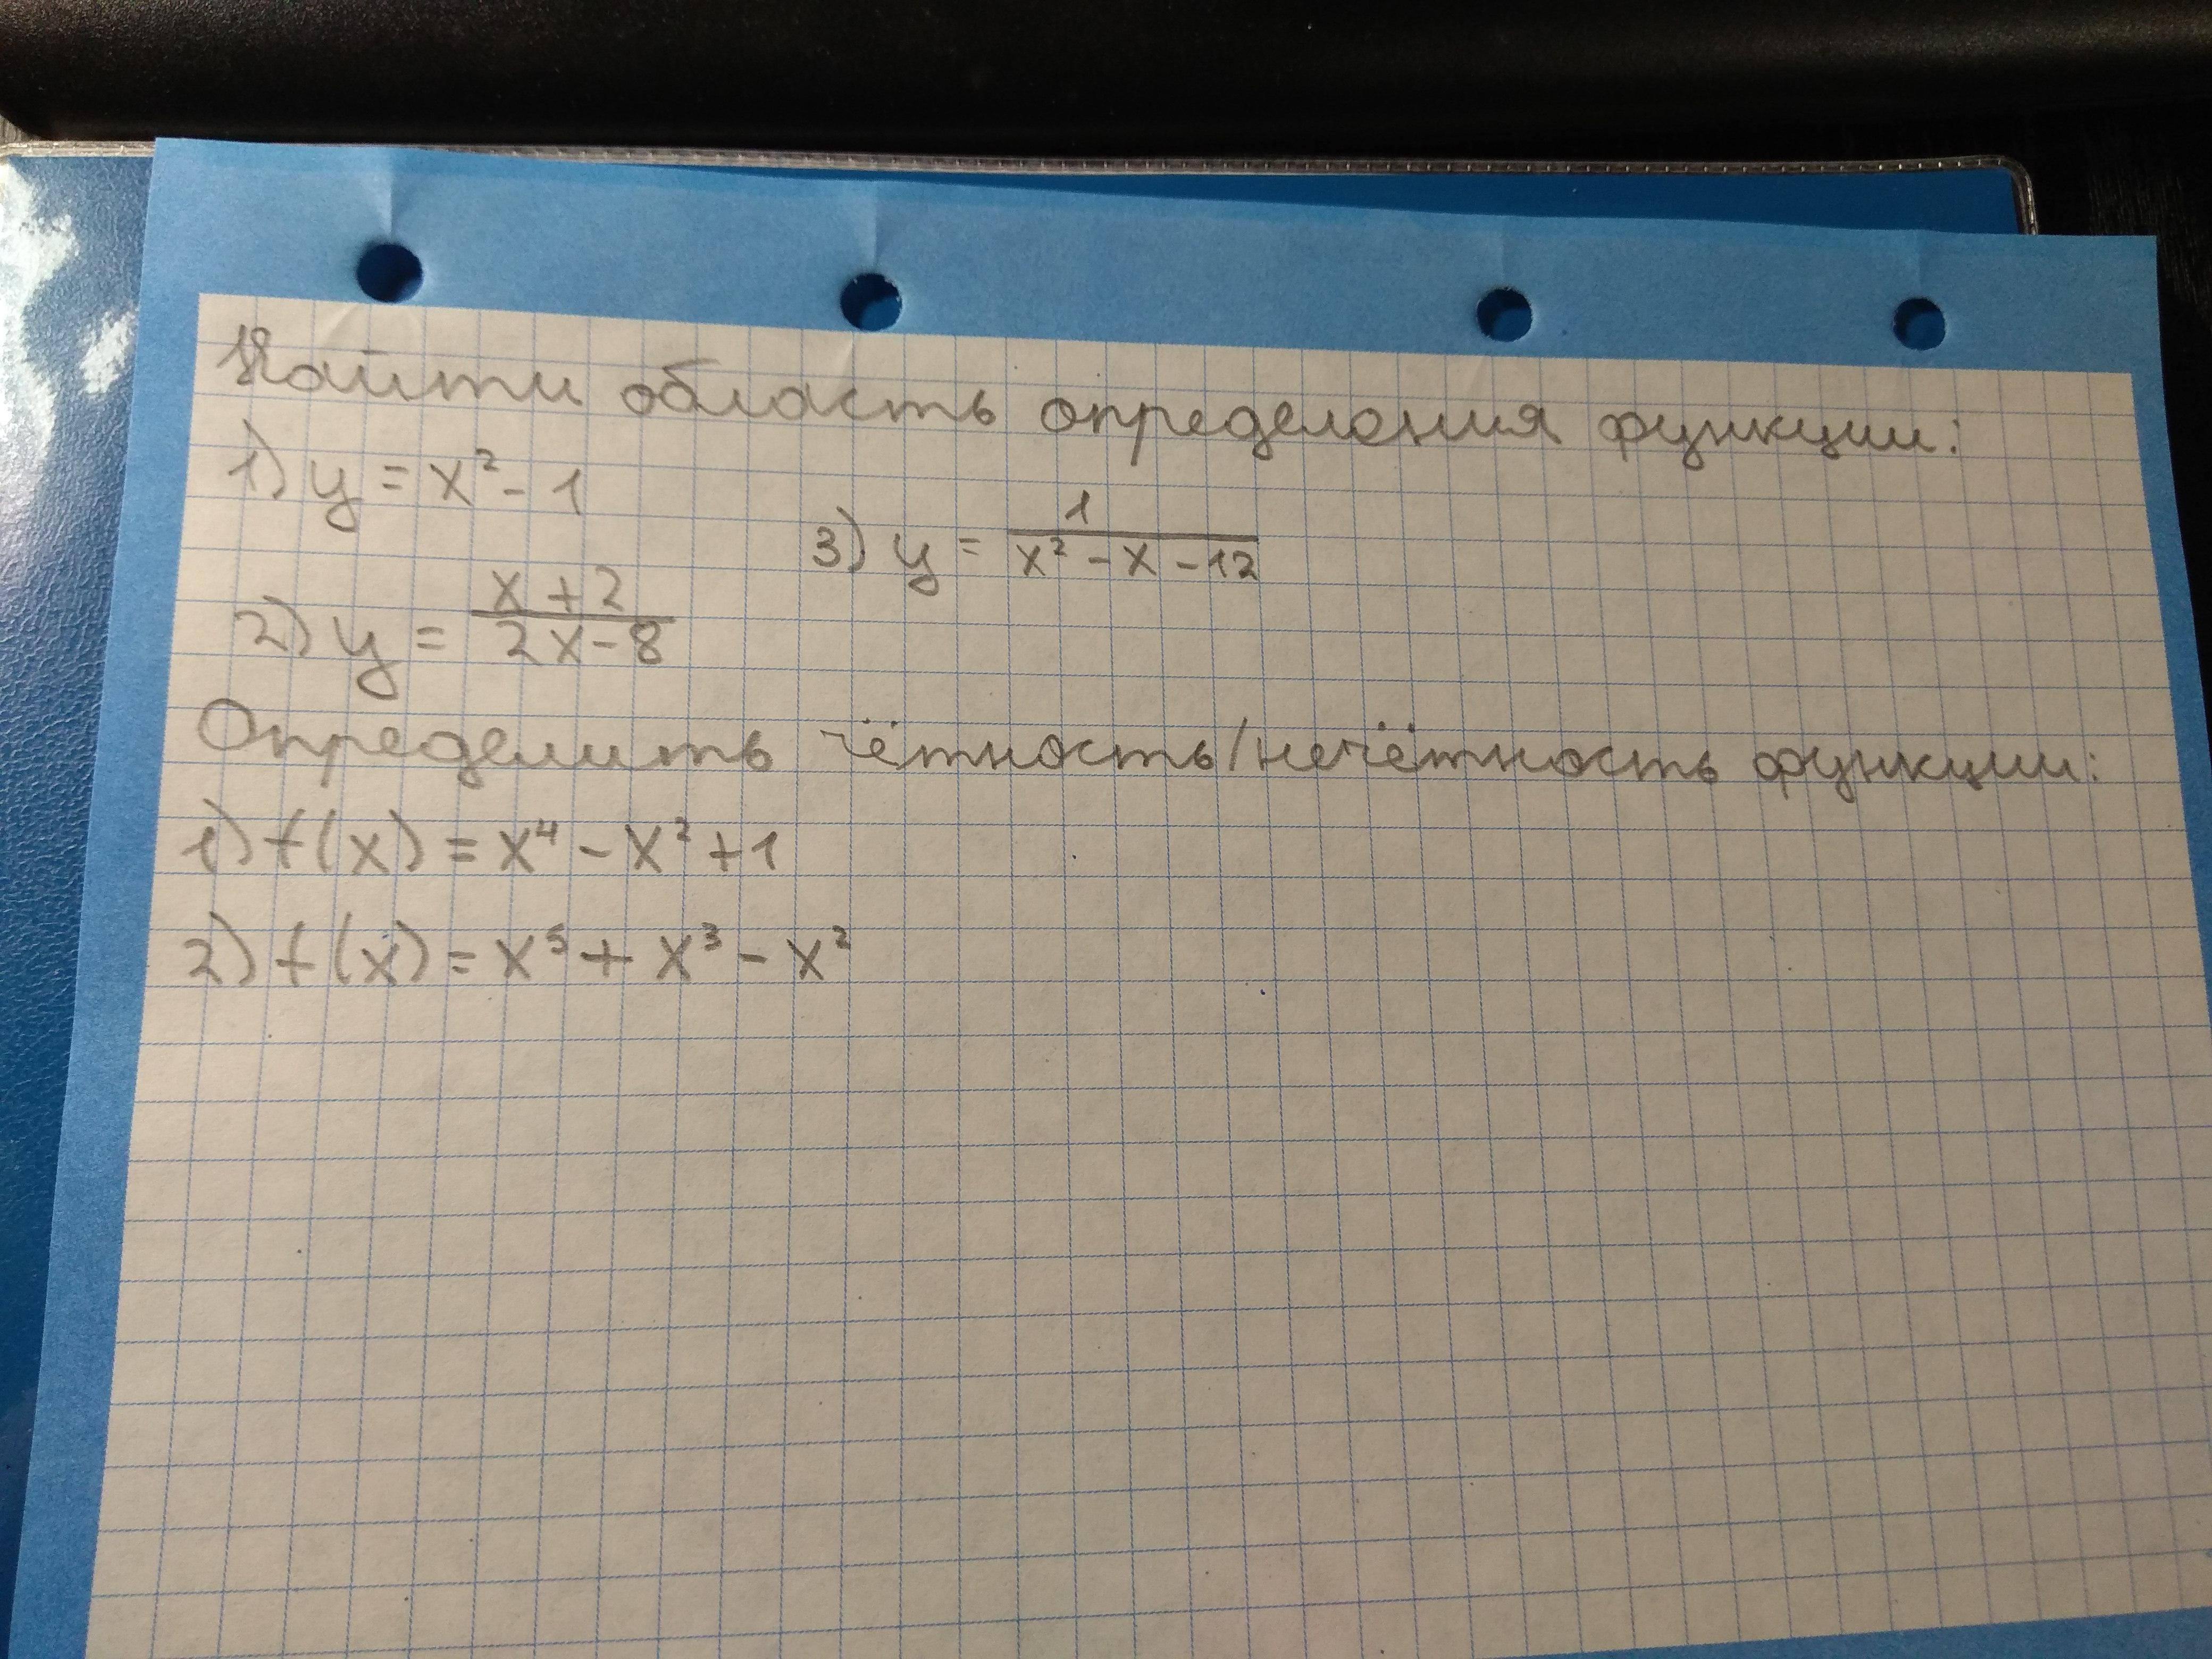 Найти область определения функции:
1) y = x² - 1
3) y = 1/(x² - x - 12)
2) y = (x + 2)/(2x - 8)
Определить чётность/нечётность функции:
1) f(x) = x⁴ - x² + 1
2) f(x) = x⁵ + x³ - x²